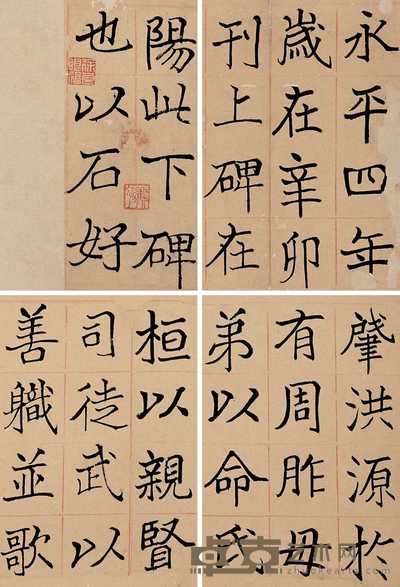 永平四年
嵗在辛卯
刊上碑在
陽此下碑
也以石好
肇洪源於
有周胙母
弟以命
桓以親賢
司徒武以
善軄並歌
卓克艺术网